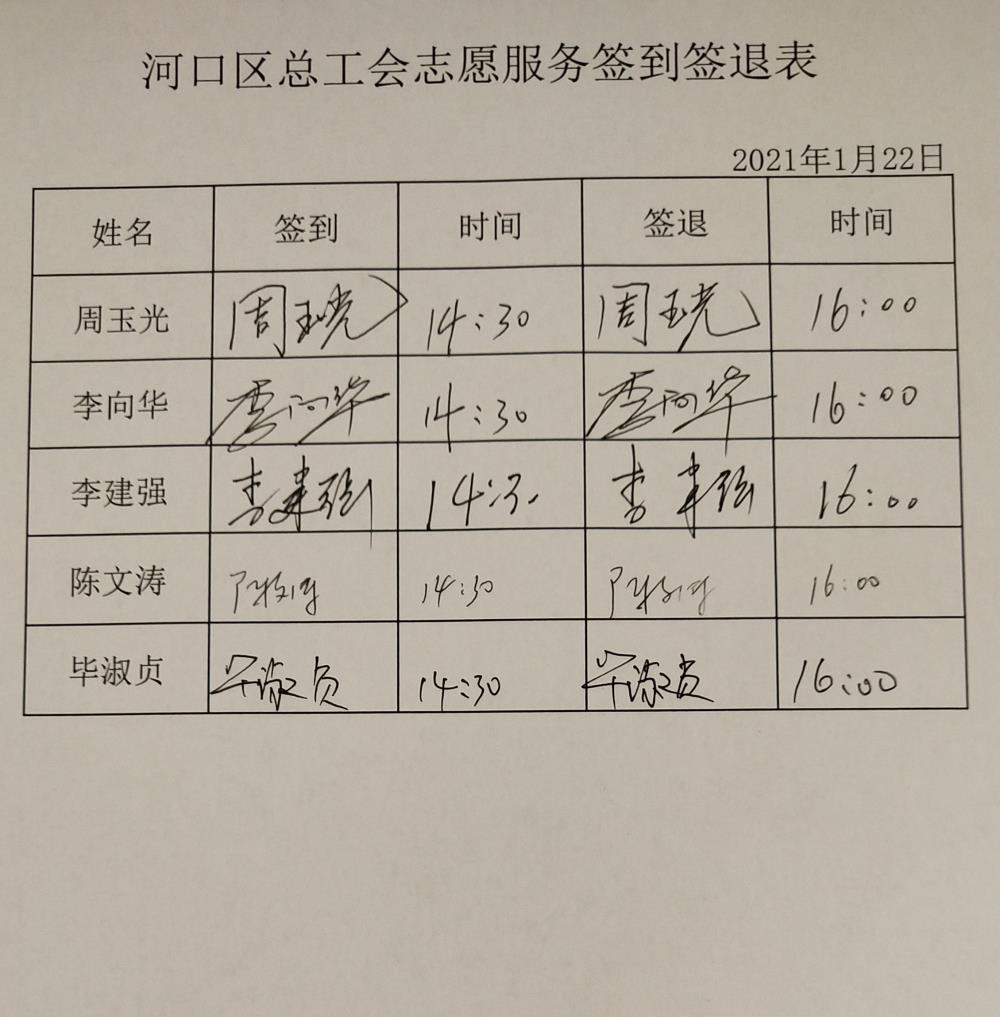 河口区总工会志愿服务签到签退表
2021年1月22日
姓名 签到 时间 签退 时间
周玉光 周玉光 14:30 周玉光 16:00
李向华 李向华 14:30 李向华 16:00
李建强 李建强 14:30 李建强 16:00
陈文涛 陈文涛 14:30 陈文涛 16:00
毕淑贞 毕淑贞 14:30 毕淑贞 16:00